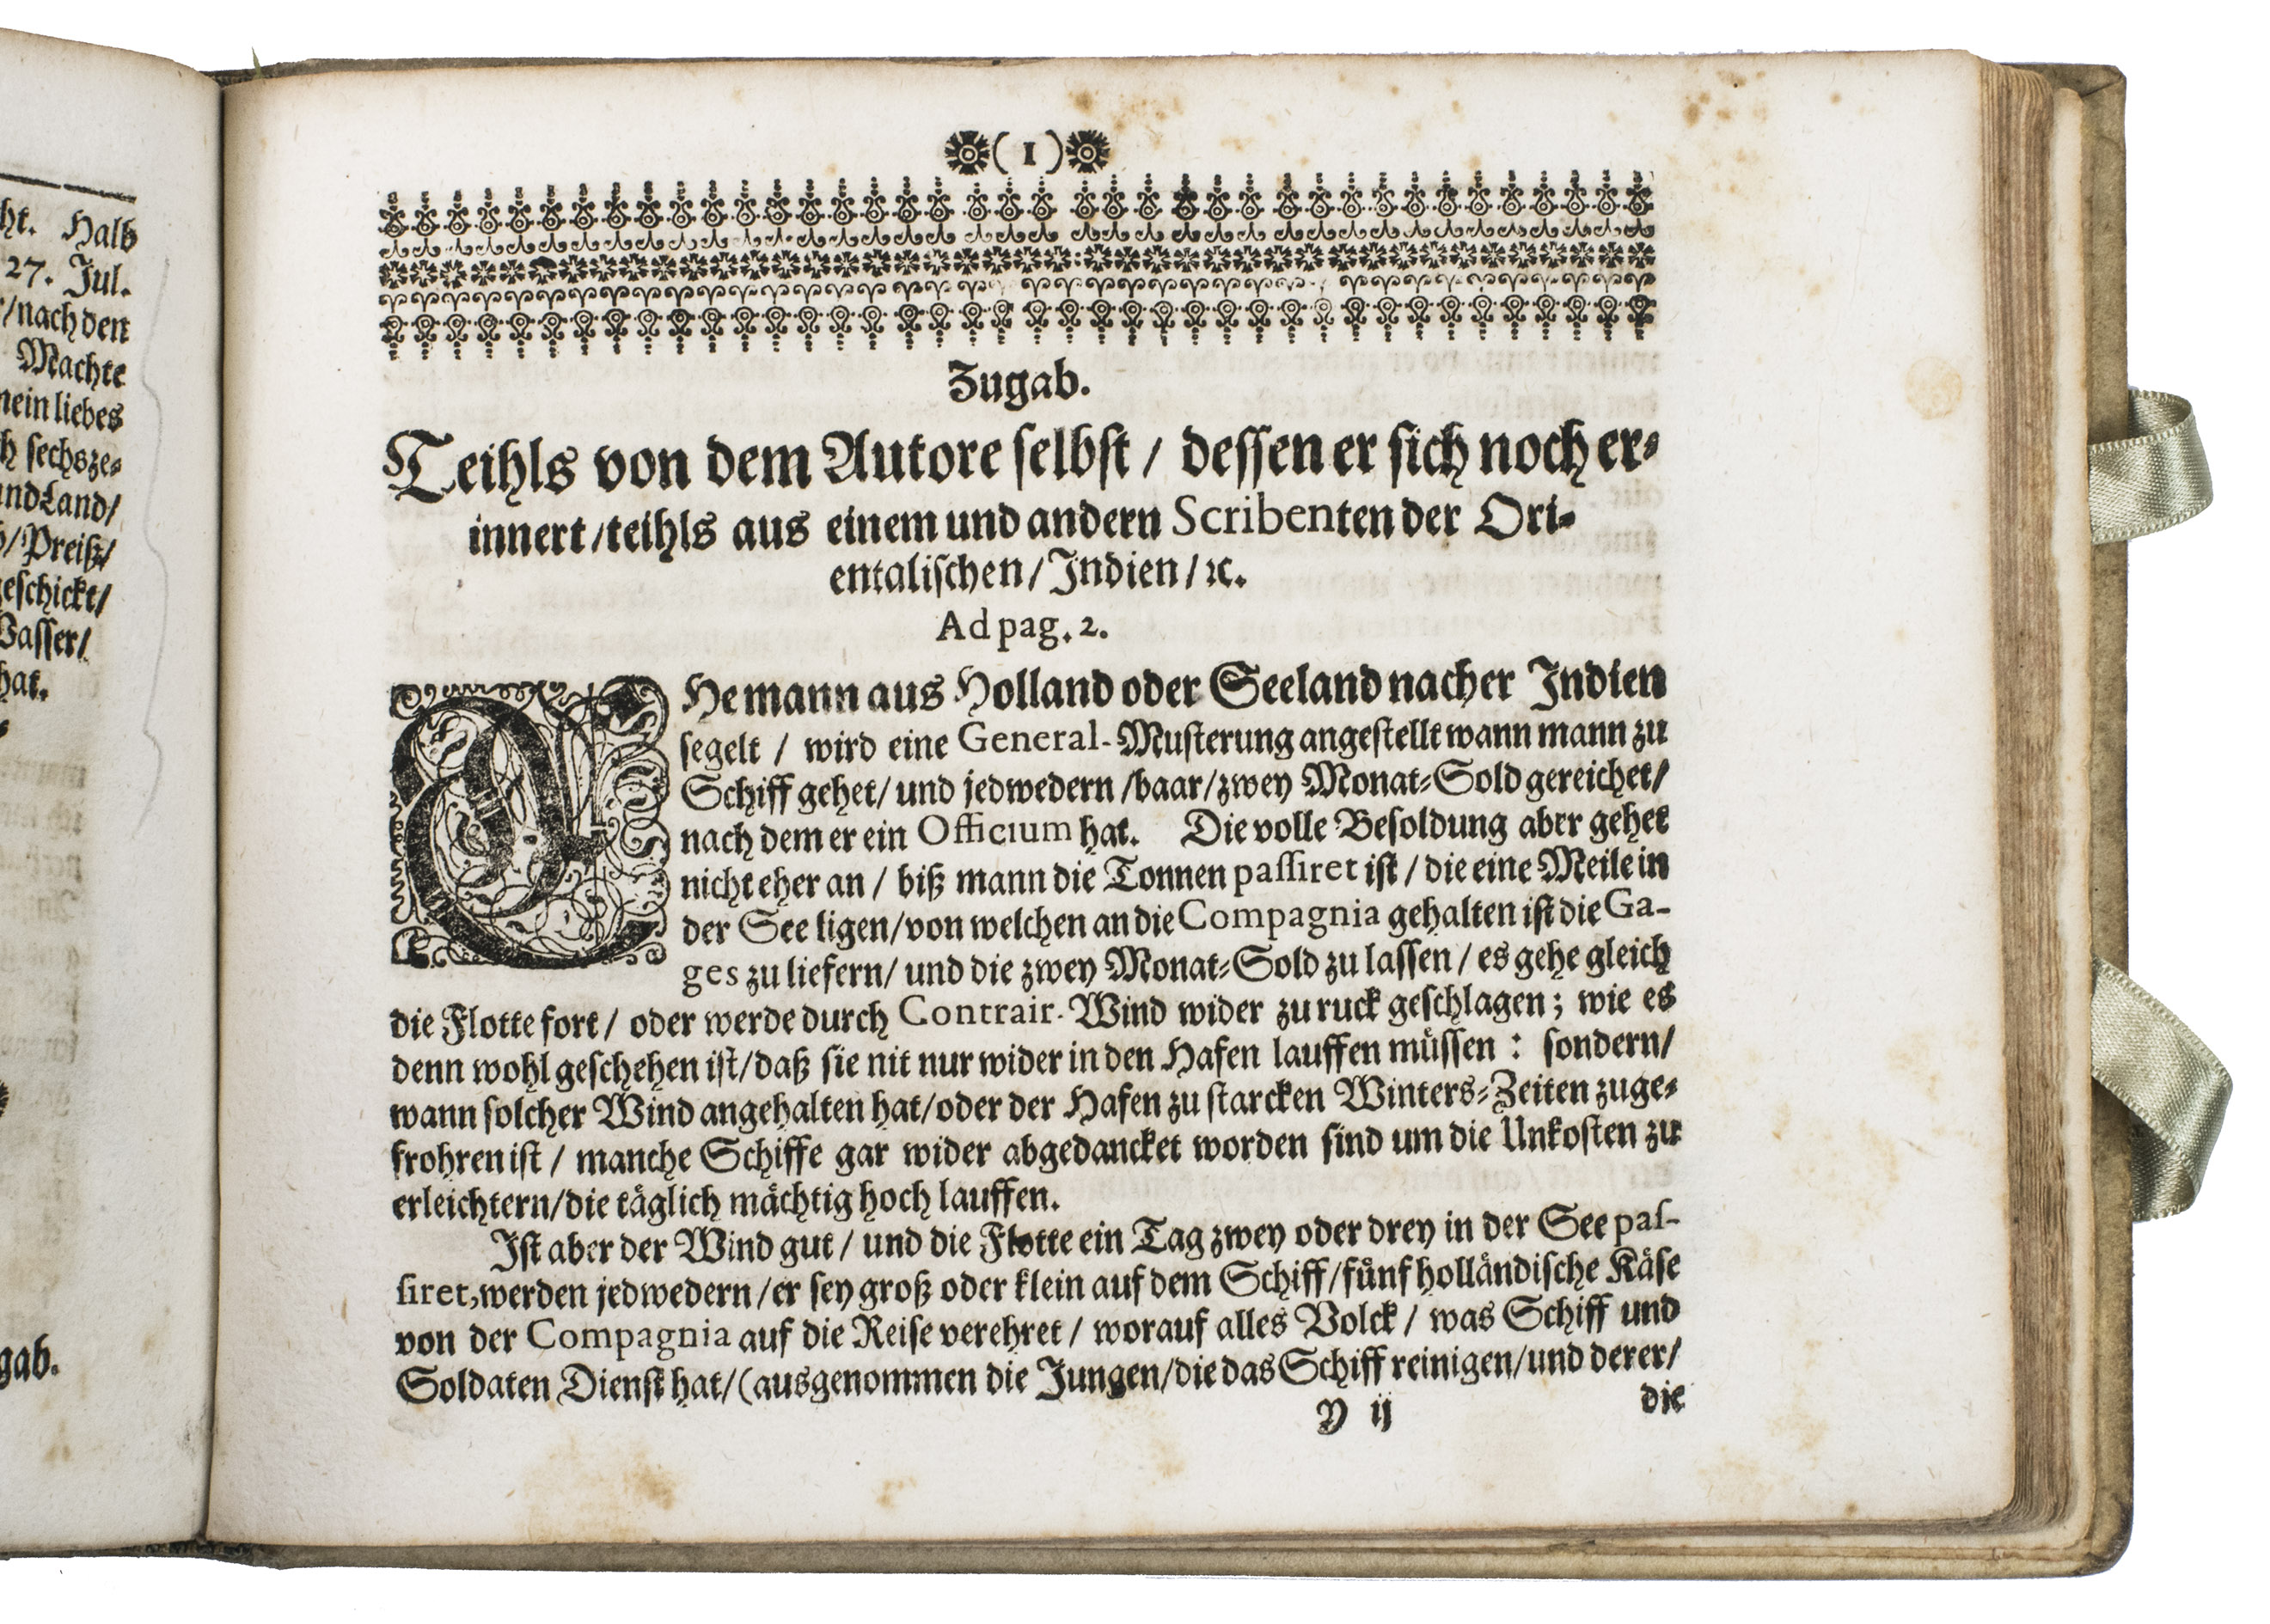 ht. Halb
27. Jul.
/nach den
Machte
mein liebes
h sechsze⸗
und Land/
/Preiß/
geschickt/
Wasser/
hat.
gab.
( 1 )
Zugab.
Teihls von dem Autore selbst / dessen er sich noch er⸗
innert / teihls aus einem und andern Scribenten der Ori⸗
entalischen / Indien / ꝛc.
Ad pag. 2.
EHe mann aus Holland oder Seeland nacher Indien
segelt / wird eine General-Musterung angestellt wann mann zu
Schiff gehet / und jedwedern / baar / zwey Monat⸗Sold gereichet /
nach dem er ein Officium hat. Die volle Besoldung aber gehet
nicht eher an / biß mann die Tonnen passiret ist / die eine Meile in
der See ligen / von welchen an die Compagnia gehalten ist die Ga-
ges zu liefern / und die zwey Monat⸗Sold zu lassen / es gehe gleich
die Flotte fort / oder werde durch Contrair-Wind wider zu ruck geschlagen; wie es
denn wohl geschehen ist / daß sie nit nur wider in den Hafen lauffen müssen : sondern /
wann solcher Wind angehalten hat / oder der Hafen zu starcken Winters⸗Zeiten zuge⸗
frohren ist / manche Schiffe gar wider abgedancket worden sind um die Unkosten zu
erleichtern / die täglich mächtig hoch lauffen.
Ist aber der Wind gut / und die Flotte ein Tag zwey oder drey in der See pas-
siret, werden jedwedern / er sey groß oder klein auf dem Schiff / fünf holländische Käse
von der Compagnia auf die Reise verehret / worauf alles Volck / was Schiff und
Soldaten Dienst hat / (ausgenommen die Jungen / die das Schiff reinigen / und derer /
Y ij die